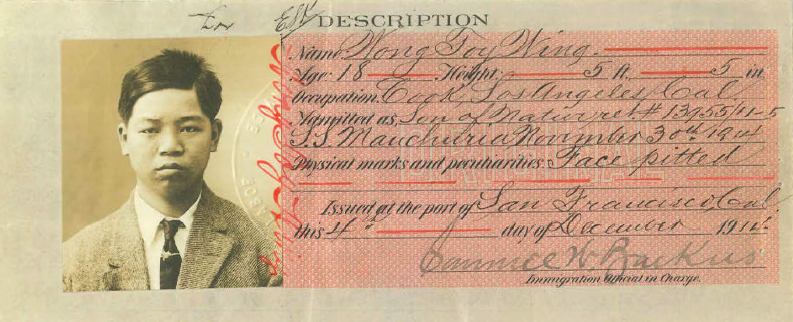 DESCRIPTION
Name Wong Toy Wing.
Age: 18 Height: 5 ft. 5 in.
Occupation: Cook, Los Angeles, Cal.
Admitted as Son of Native, ret # 13955/11-5
S.S. Manchuria November 30th 1914
Physical marks and peculiarities: Face pitted
Issued at the port of San Francisco, Cal
this 4th day of December 1914.
Samuel W Backus
Immigration Official in Charge.